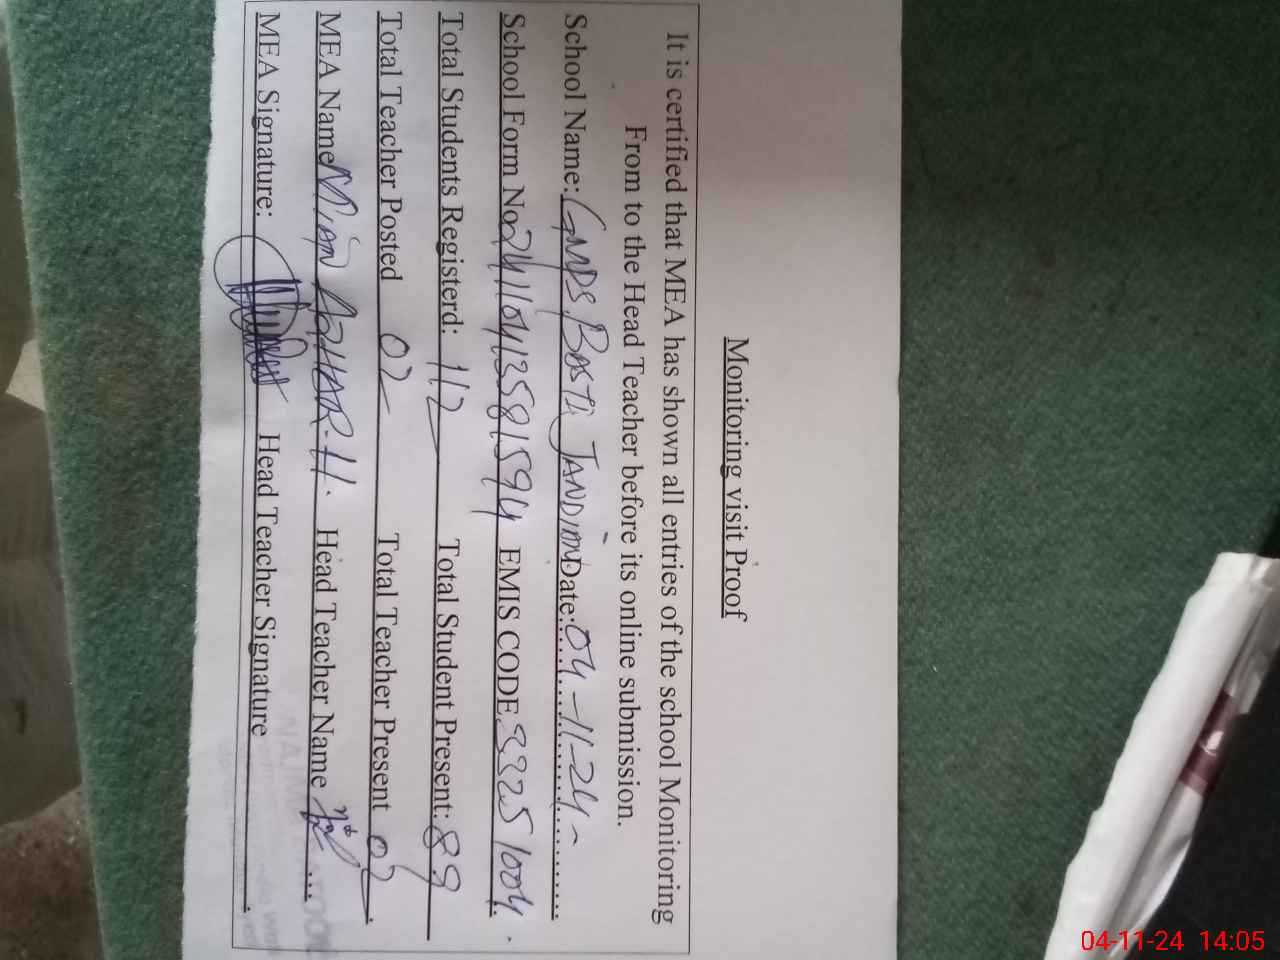 Monitoring visit Proof
It is certified that MEA has shown all entries of the school Monitoring
From to the Head Teacher before its online submission.
School Name: GMPS, BASTI JANDIAN Date: 04-11-24-
School Form No 24110413581594 EMIS CODE 33251004.
Total Students Registerd: 112 Total Student Present: 89
Total Teacher Posted 02 Total Teacher Present 02
MEA Name MIAN AZHAR-H. Head Teacher Name
MEA Signature: Head Teacher Signature
04-11-24 14:05